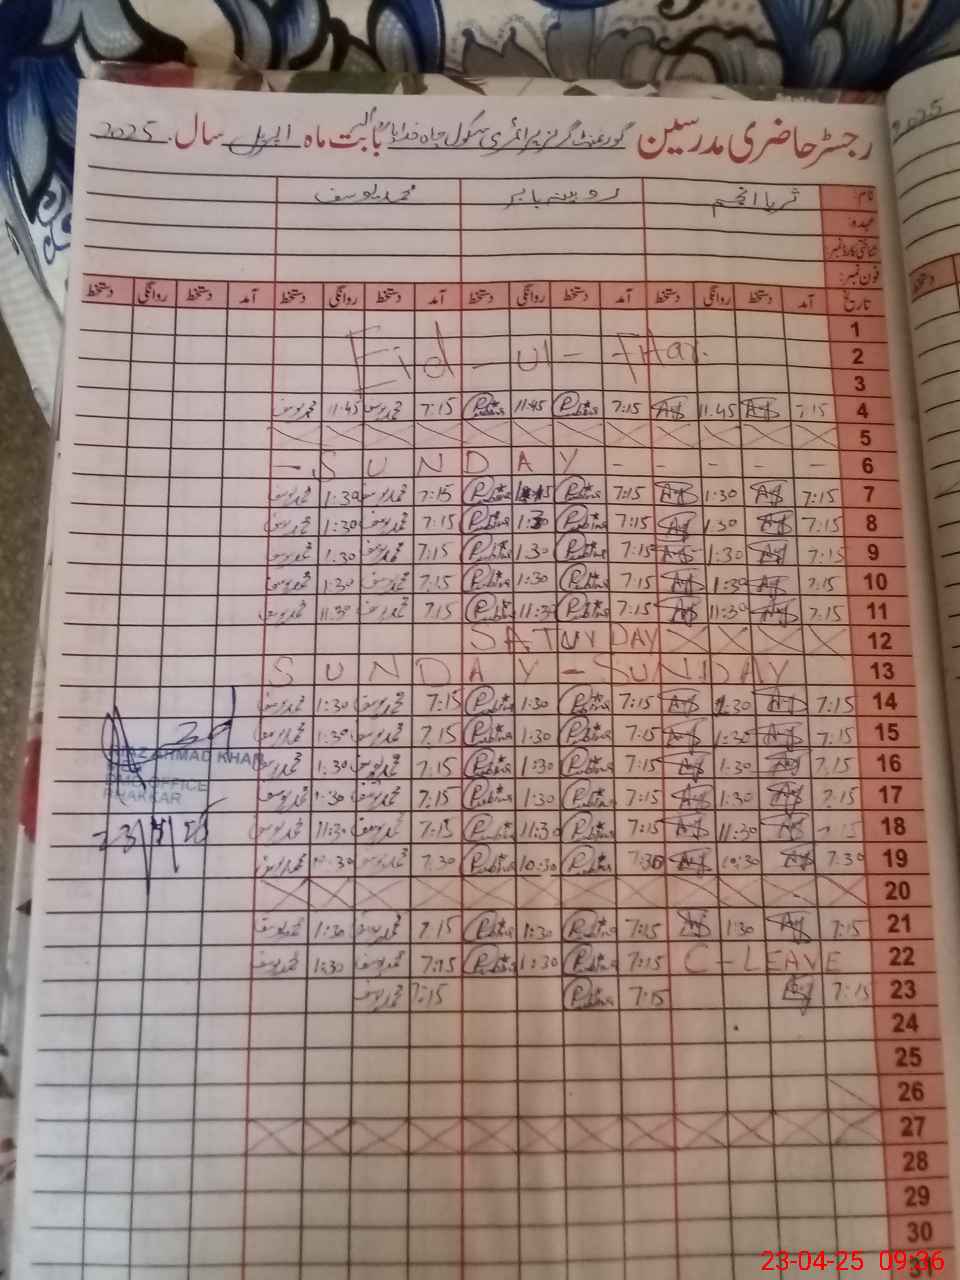 رجسٹر حاضری مدرسین گورنمنٹ گرلز پرائمری سکول چاہ خدا بابت ماہ اپریل سال 2025
نام: ثریا انجم روبینہ بابر محمد یوسف
عہدہ:
شناختی کارڈ نمبر:
فون نمبر:
تاریخ آمد دستخط روانگی دستخط آمد دستخط روانگی دستخط آمد دستخط روانگی دستخط آمد دستخط روانگی دستخط
1
2 Eid-ul-fitar.
3
4 7:15 11.45 7:15 11:45 7:15 محمد یوسف 11:45 محمد یوسف
5
6 - SUNDAY - - - - -
7 7:15 1:30 7:15 7:15 محمد یوسف 1:30 محمد یوسف
8 7:15 1:30 7:15 1:30 7:15 محمد یوسف 1:30 محمد یوسف
9 7:15 1:30 7:15 1:30 7:15 محمد یوسف 1:30 محمد یوسف
10 7:15 1:30 7:15 1:30 7:15 محمد یوسف 1:30 محمد یوسف
11 7:15 11:30 7:15 11:30 7:15 محمد یوسف 11:30 محمد یوسف
12 SATURDAY
13 SUNDAY - SUNDAY
14 7:15 1:30 7:15 1:30 7:15 محمد یوسف 1:30 محمد یوسف
15 7:15 1:30 7:15 1:30 7.15 محمد یوسف 1:30 محمد یوسف
16 7.15 1:30 7:15 1:30 7:15 محمد یوسف 1:30 محمد یوسف
17 7:15 1:30 7:15 1:30 7:15 محمد یوسف 1:30 محمد یوسف
18 7:15 11:30 7:15 11:30 7:15 محمد یوسف 11:30 محمد یوسف
19 7:30 10:30 7:30 10:30 7:30 محمد یوسف 10:30 محمد یوسف
20
21 7:15 1:30 7:15 1:30 7.15 محمد یوسف 1:30 محمد یوسف
22 C-LEAVE 7:15 1:30 7:15 محمد یوسف 1:30 محمد یوسف
23 7:15 7:15 7:15 محمد یوسف
24
25
26
27
28
29
30
31
AHMAD KHAN
OFFICE
BHAKKAR
2025
دستخط
23-04-25 09:36